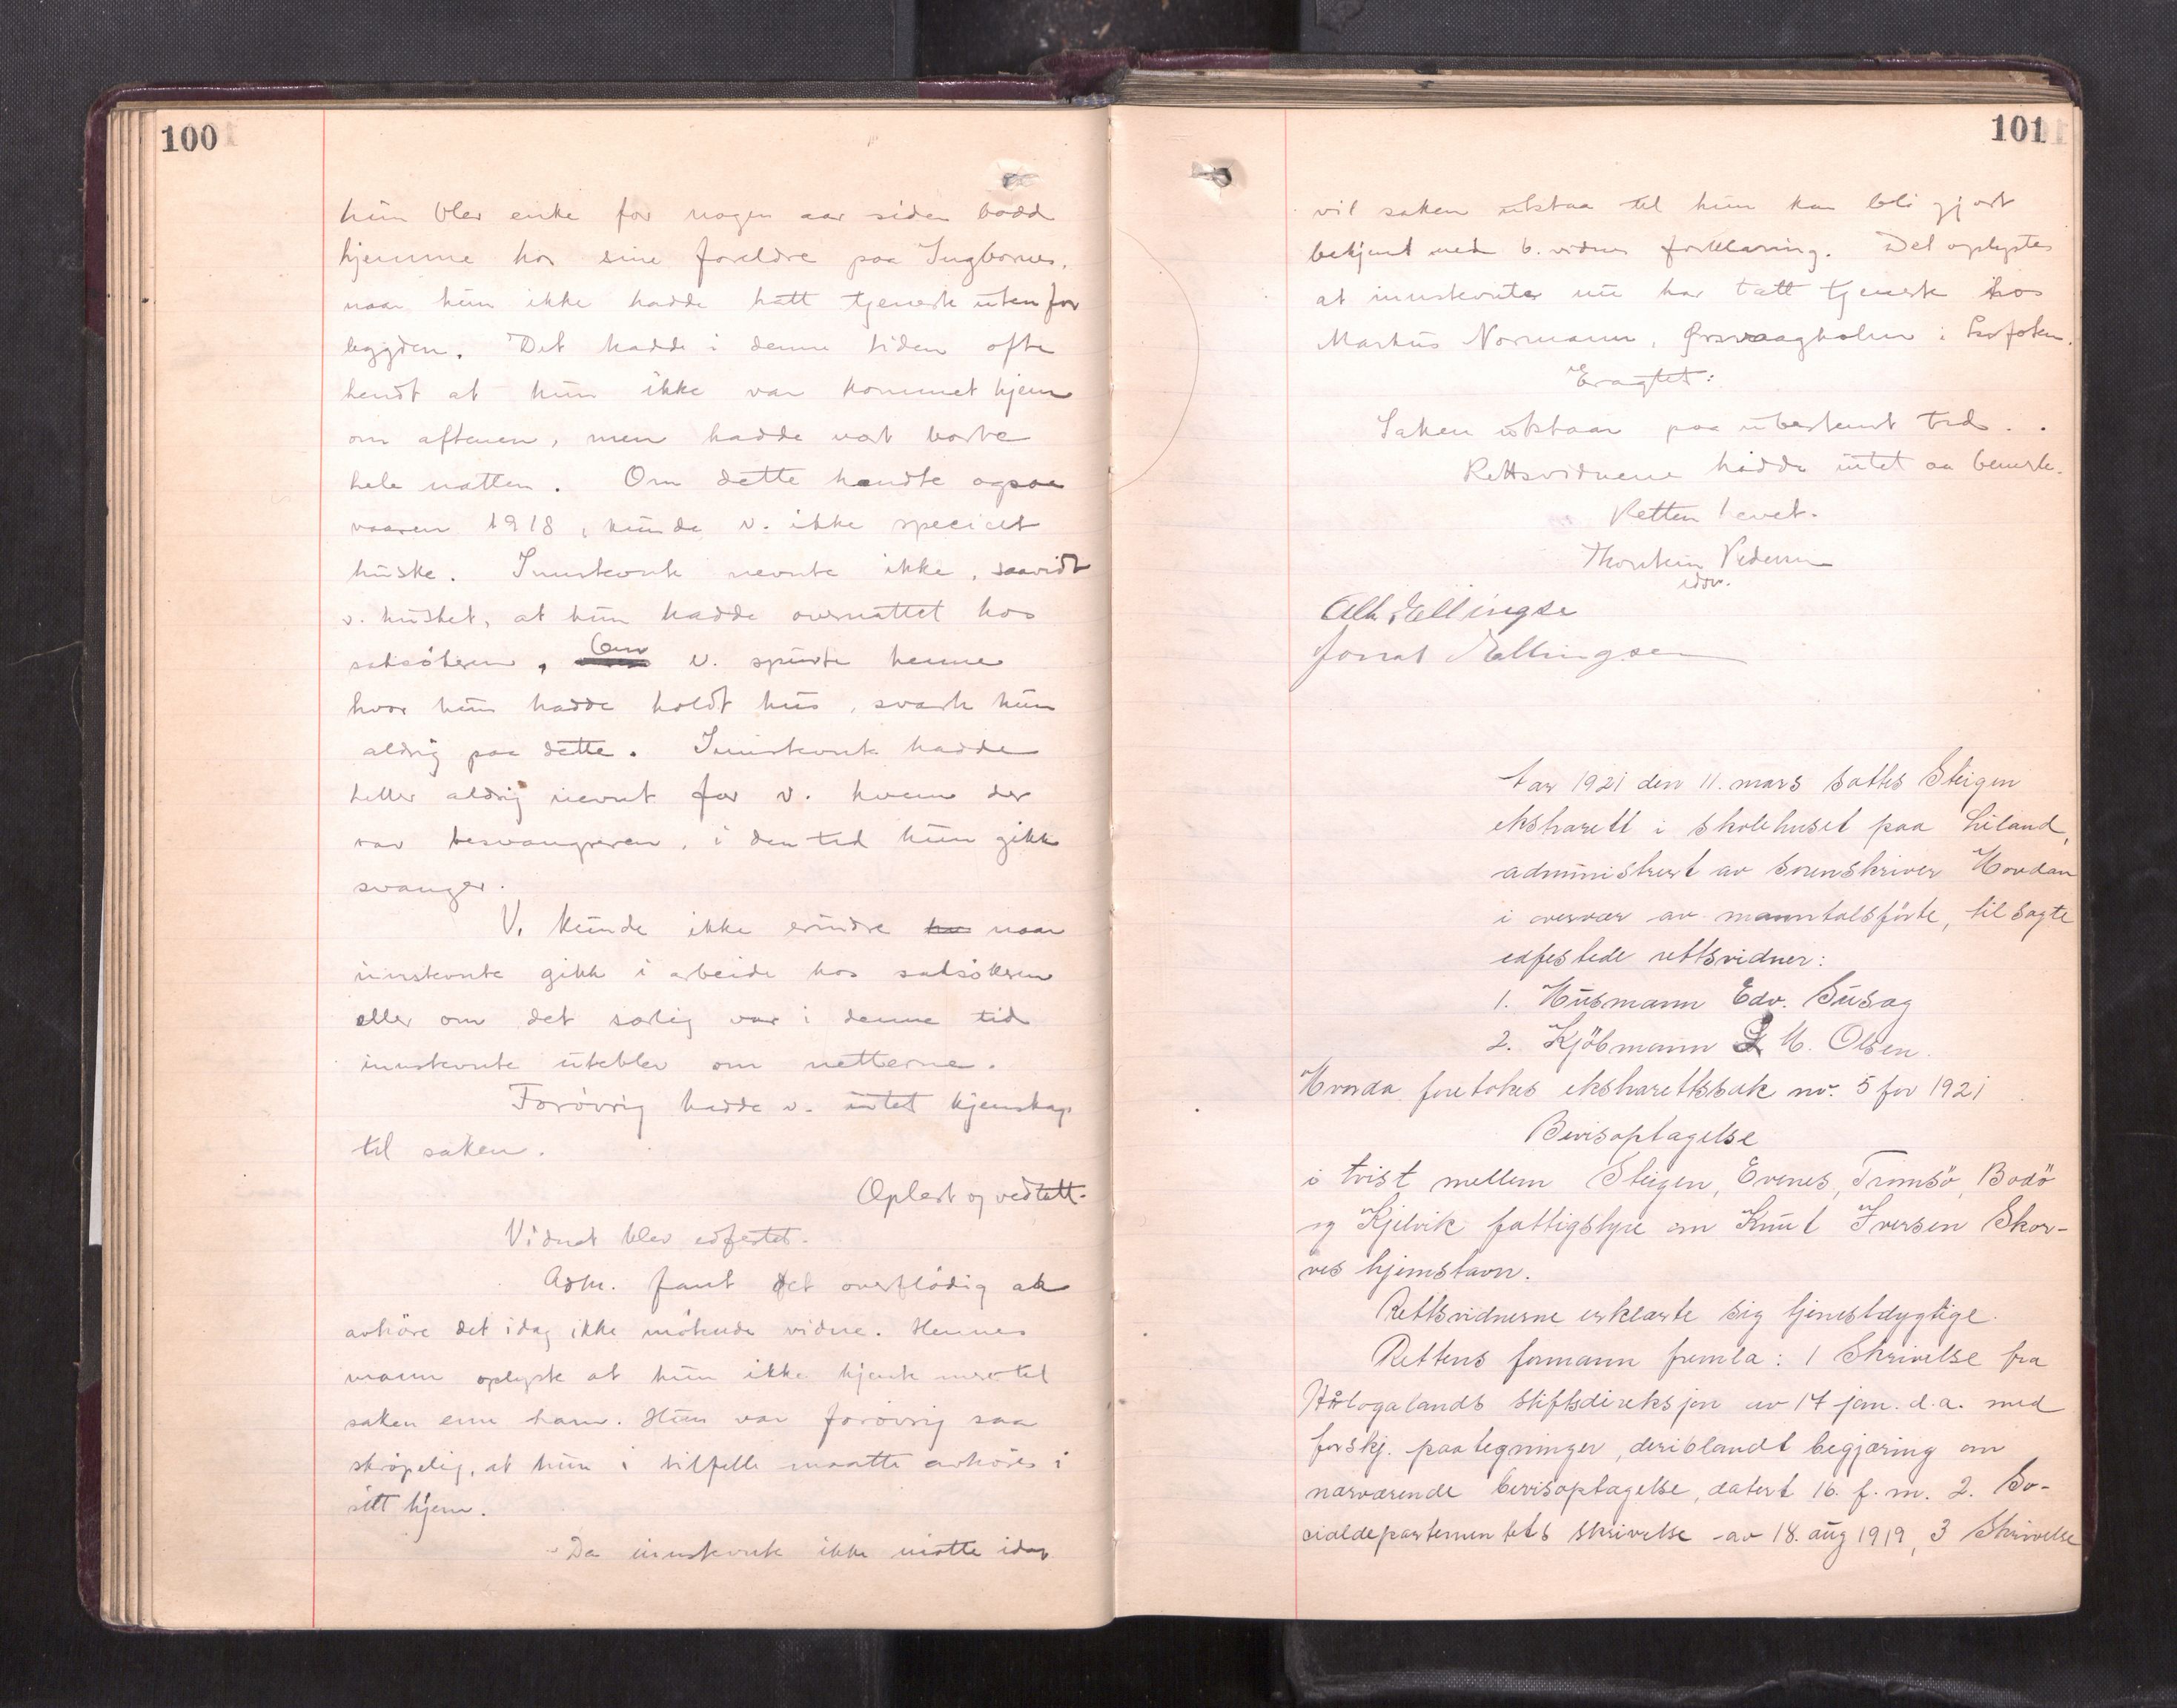 100
hun blev enke for nogen aar siden bodd
hjemme hos sine foreldre paa Ingbornes,
naar hun ikke hadde hatt tjeneste utenfor
bygden. Det hadde i denne tiden ofte
hendt at hun ikke var kommet hjem
om aftenen, men hadde vært borte
hele natten. Om dette hendte ogsaa
vaaren 1918, kunde v. ikke specielt
huske. Innstevnte nevnte ikke, saavidt
v. husket, at hun hadde overnattet hos
saksökeren, Om v. spurte henne
hvor hun hadde holdt hus, svarte hun
aldrig paa dette. Innstevnte hadde
heller aldrig nevnt for v. hvem der
var besvangreren, i den tid hun gikk
svanger.
V. kunde ikke erindre naar
innstevnte gikk i arbeide hos saksökeren
eller om det særlig var i denne tid
innstevnte uteblev om netterne.
Forövrig hadde v. intet kjenskap
til saken.
Oplest og vedtatt.
Vidnet blev edfestet.
Adm. fant det overflödig at
avhöre det idag ikke mötende vidne. Hennes
mann oplyste at hun ikke kjente mer til
saken enn ham. Hun var forövrig saa
skröpelig, at hun i tilfelle maatte avhöres i
sitt hjem.
Da innstevnte ikke mötte idag
101
vil saken utstaa til hun kan bli gjort
bekjent med 6. vidnes forklaring. Det oplystes
at innstevnte nu har tatt tjeneste hos
Markus Normann, Ørsvaagholm i Lofoten.
Eragtet:
Saken utstaar paa ubestemt tid.
Rettsvidnene hadde intet aa bemerke.
Retten hevet.
Thorstein Pedersen
edsv.
Alb. Ellingse
Jonat Ellingsen
Aar 1921 den 11. mars sattes Steigen
ekstrarett i skolehuset paa Leiland,
administrert av sorenskriver Hovdan
i overvær av manntalsförte, tilsagte
edfestede rettsvidner:
1. Husmann Edv. Busag
2. Kjöbmann L M. Olsen.
Hvorda foretokes ekstrarettssak nr. 5 for 1921
Bevisoptagelse
i tvist mellem Steigen, Evenes, Tromsö, Bodö
og Kjelvik fattigstyre om Knut Iversen Skor-
ves hjemstavn.
Rettsvidnerne erklærte sig tjenestdygtige.
Rettens formann fremla: 1 Skrivelse fra
Hålogalands stiftsdireksjon av 17 jan. d.a. med
forskj. paategninger, deriblandt begjæring om
nærværende bevisoptagelse, datert 16. f. m. 2. So-
cialdepartementets skrivelse av 18. aug 1919, 3 Skrivelse